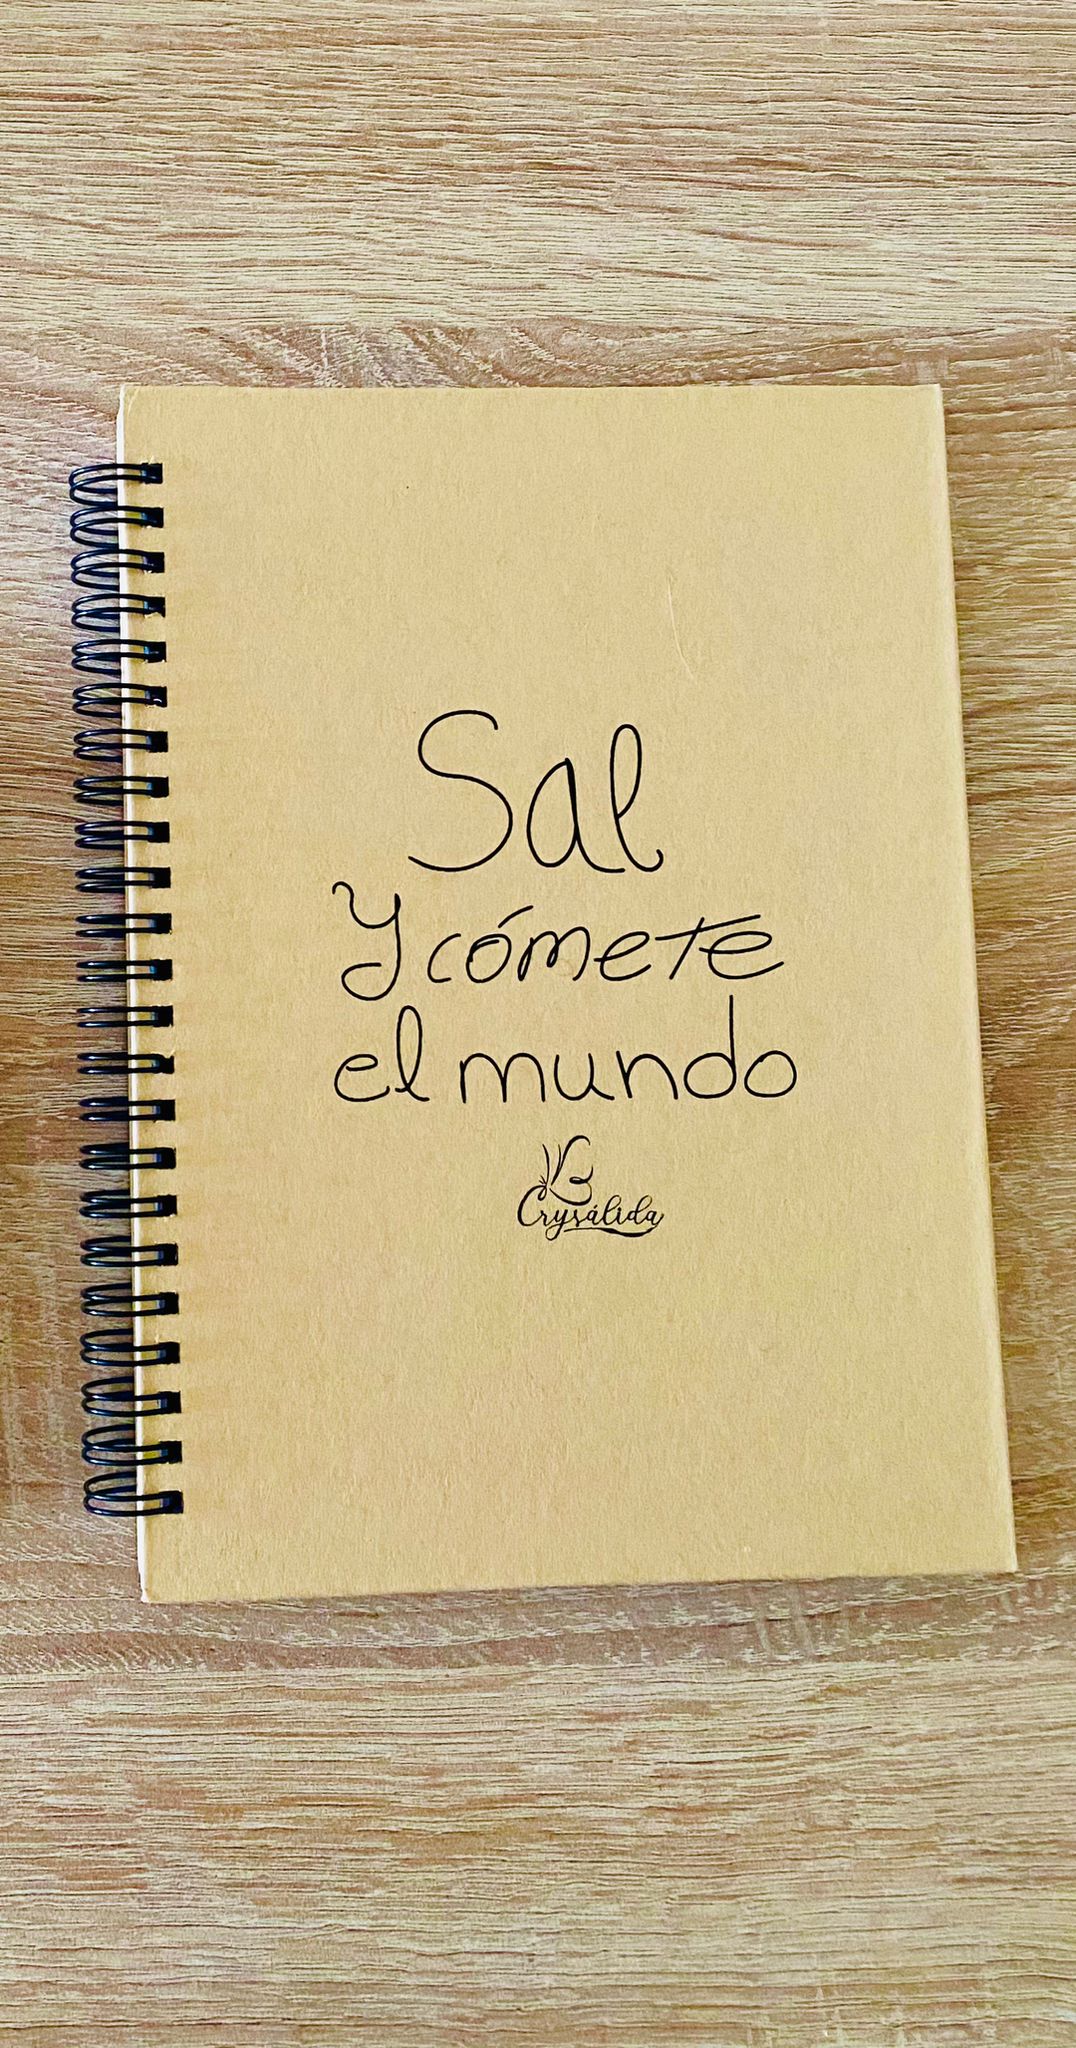 Sal
y cómete
el mundo
Crysálida